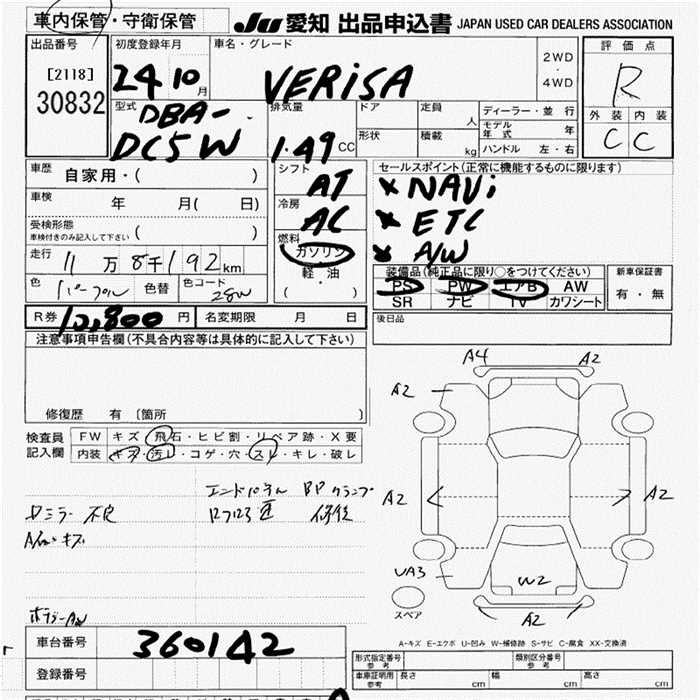 車内保管・守衛保管
JU 愛知 出品申込書 JAPAN USED CAR DEALERS ASSOCIATION
出品番号
[2118]
30832
初度登録年月
24 10月
車名・グレード
VERiSA
2WD
・
4WD
評価点
R
外装 内装
C C
型式
DBA-
DC5W
排気量
1.49 CC
ドア
定員 人
形状
積載 kg
ディーラー・並行
モデル年式 年
ハンドル 左・右
車歴
自家用・( )
車検 年 月( 日)
受検形態
車検付きのみ記入して下さい ( )
走行
11万8千192km
色 パープル 色替 色コード 28W
シフト
AT
冷房
AC
燃料
ガソリン
軽・油
( )
セールスポイント(正常に機能するものに限ります)
× NAVi
× ETC
× A/W
装備品(純正品に限り○をつけてください)
PS PW エアB AW
SR ナビ TV カワシート
新車保証書
有・無
R券 10,800円 名変期限 月 日
後日品
注意事項申告欄(不具合内容等は具体的に記入して下さい)
修復歴 有 〔箇所 〕
検査員
記入欄
FW キズ・飛石・ヒビ割・リペア跡・X要
内装 キズ・汚レ・コゲ・穴・スレ・キレ・破レ
エンドパネル BPクランプ
修復
ミラー 不良
キズ
A4 A2
A2
A2 A2
UA3 W2
スペア
A2
A-キズ E-エクボ U-凹み W-補修跡 S-サビ C-腐食 XX-交換済
車台番号 360142
登録番号
形式指定番号
参考
類別区分番号
参考
車庫証明用
参考
長さ cm 幅 cm 高さ cm